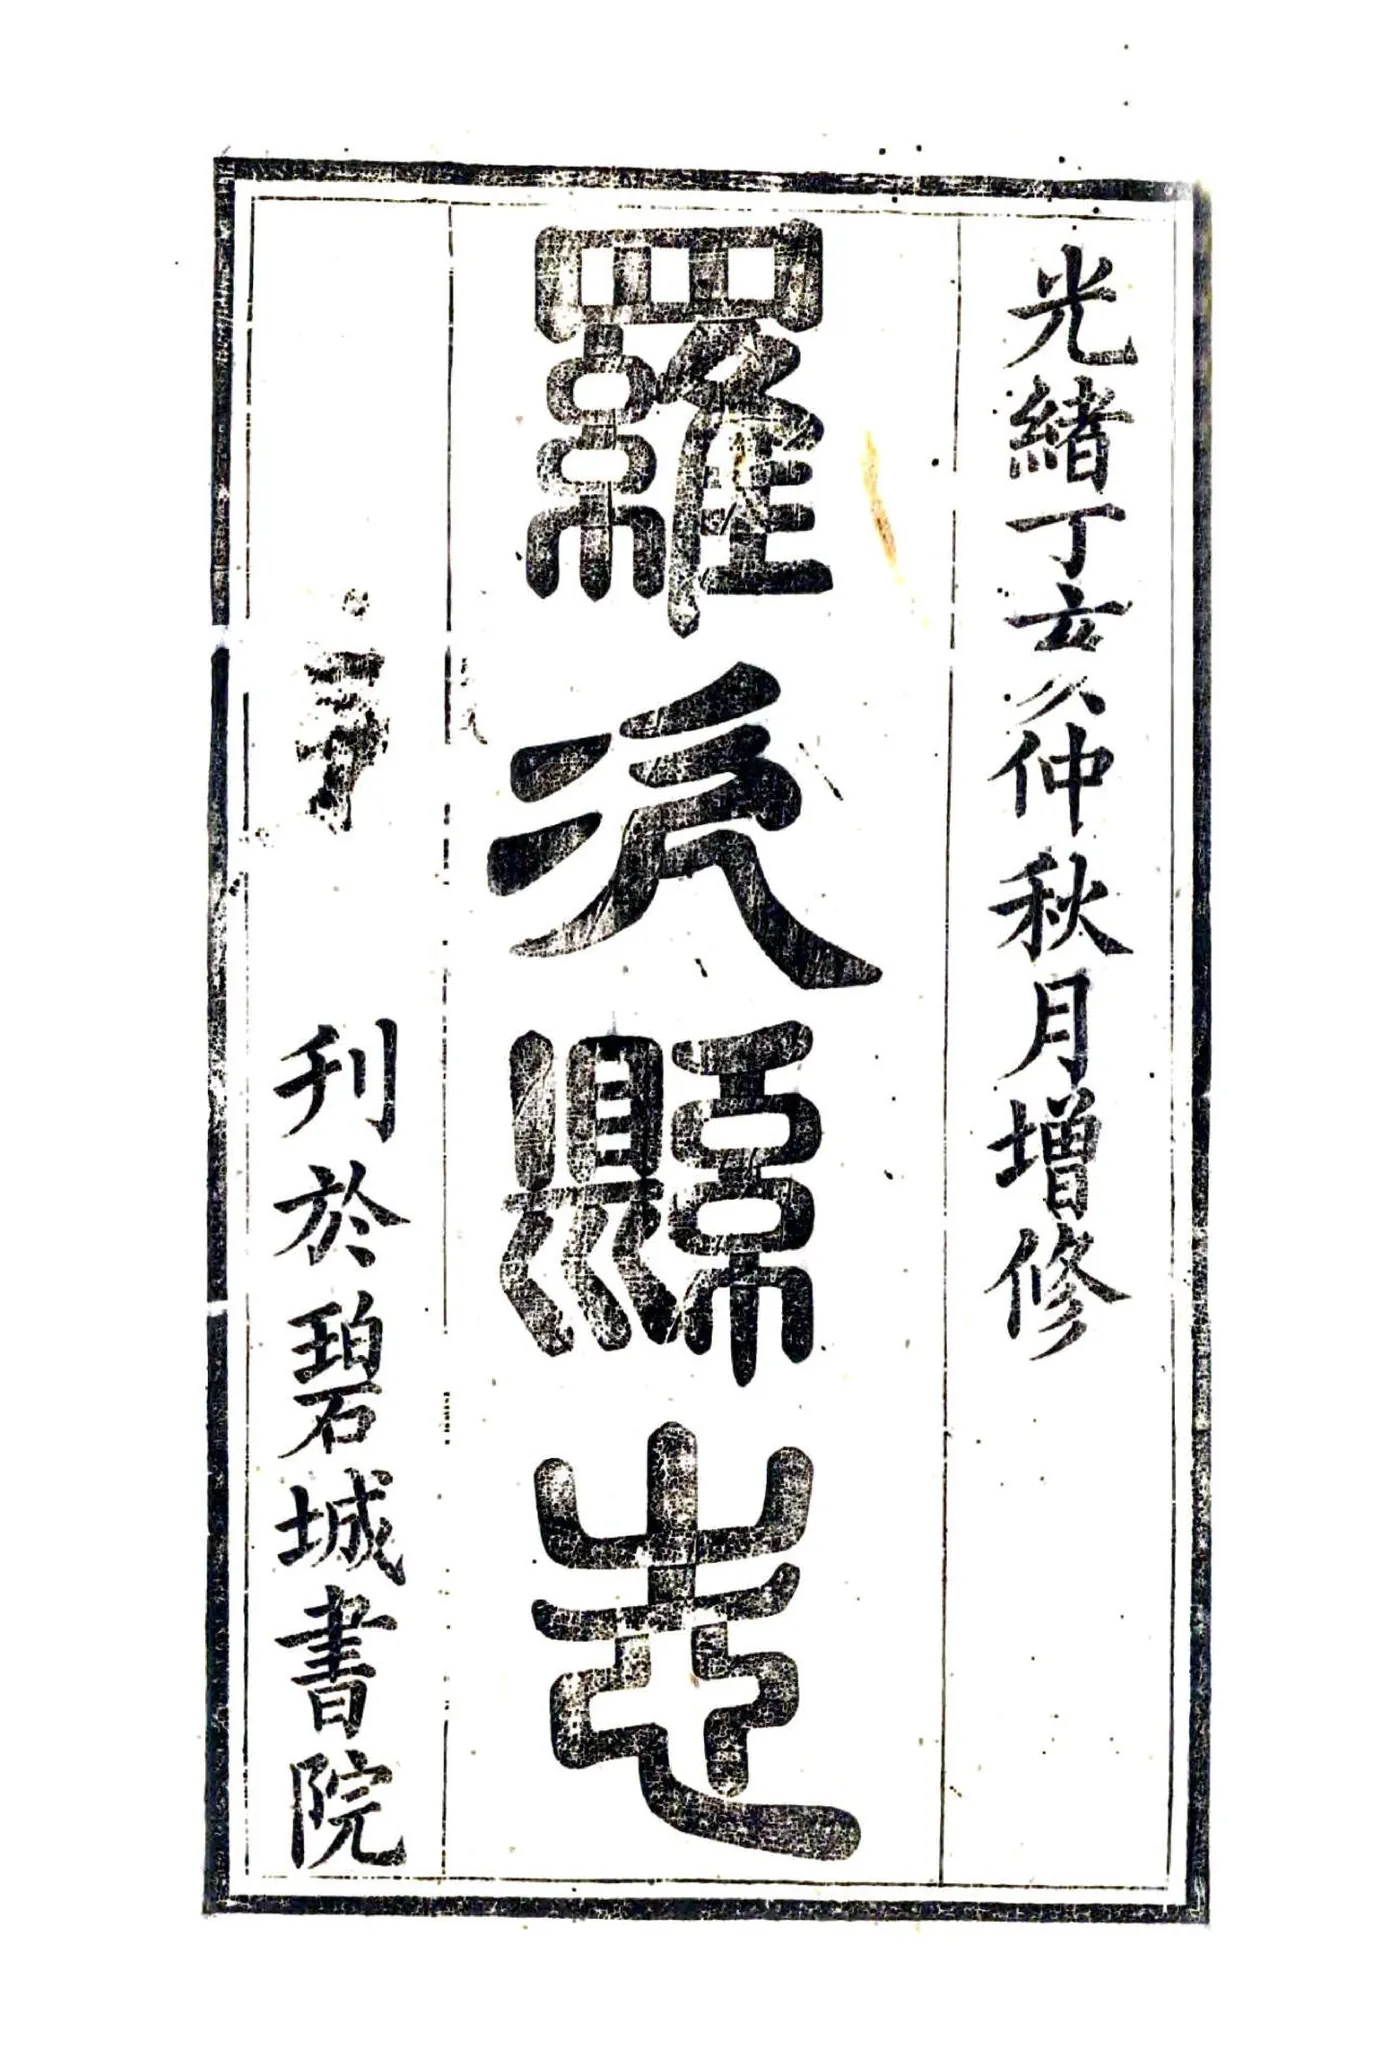 光緒丁亥仲秋月增修
羅次縣志
刊於碧城書院